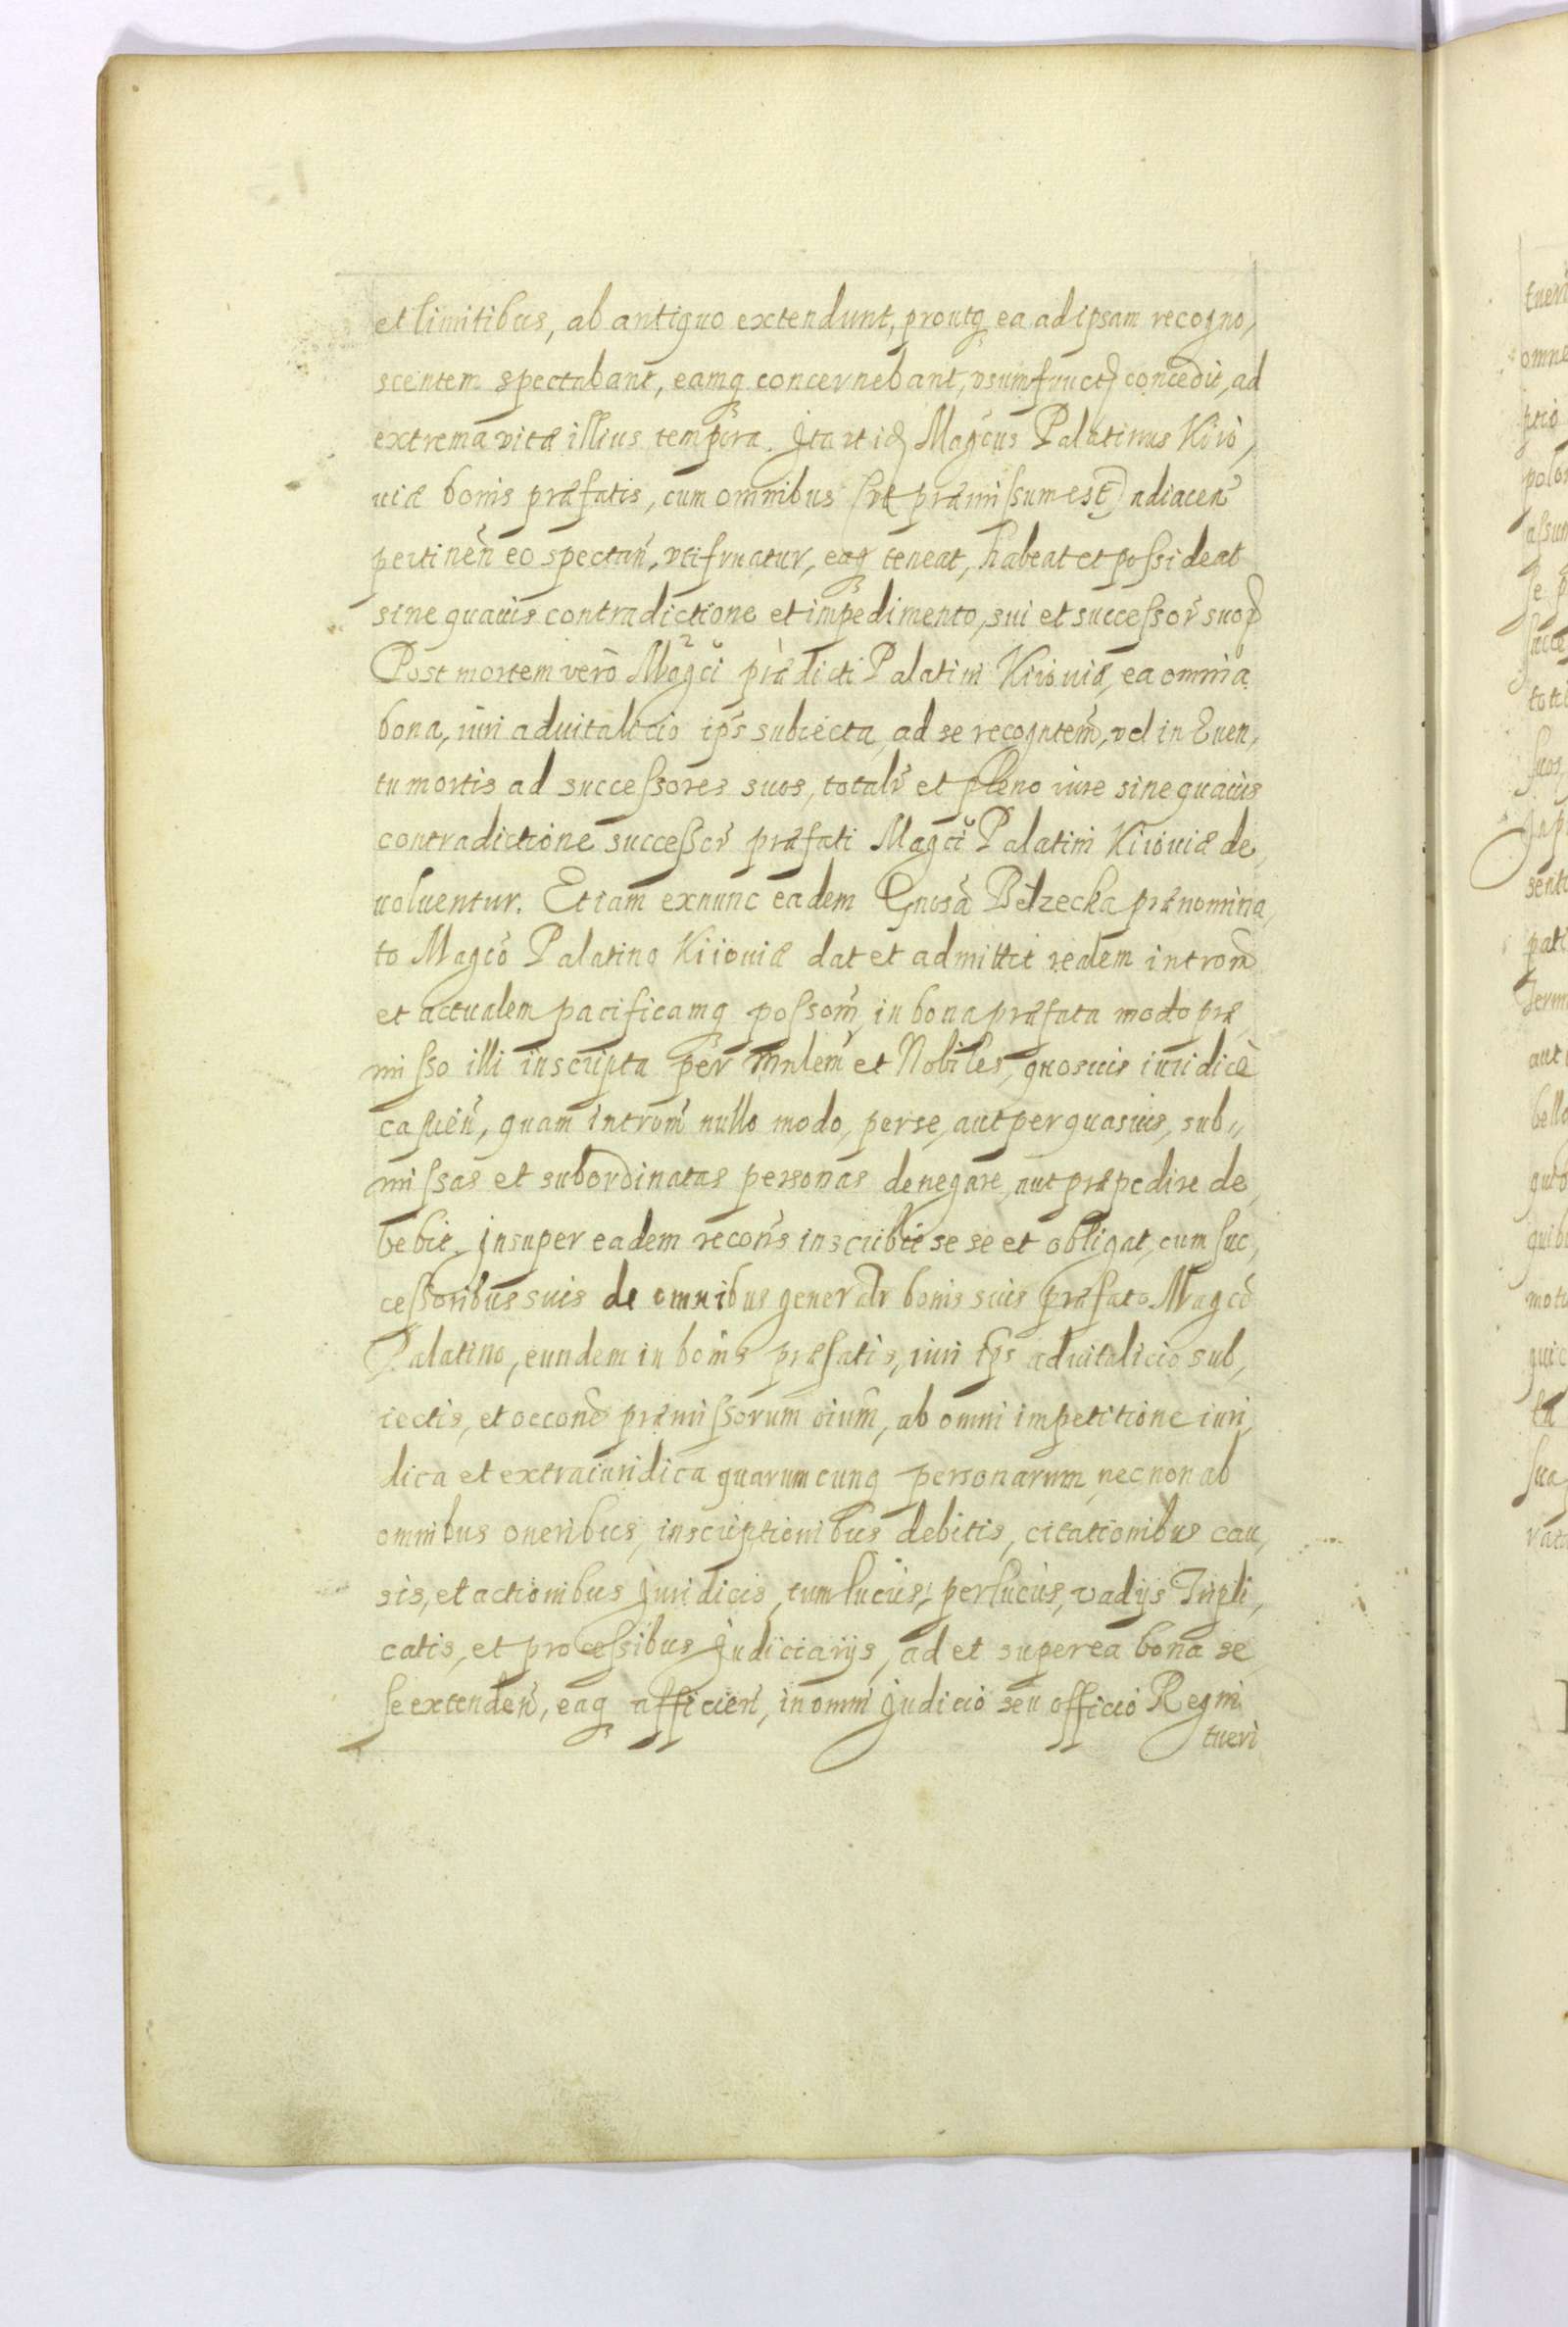 et limitibus, ab antiquo extendunt, proutq ea ad ipsam recogno,
scentem spectabant, eamq concernebant, vsumfructq concedit, ad
extrema vitæ illius tempora. Ita vt idq Magcus Palatinus Kiio,
uiæ bonis præfatis, cum omnibus (vt præmissum est) adiacen
pertinen eo spectan, vtifruatur, eaq teneat, habeat et possideat
sine quauis contradictione et impedimento, sui et successor suor
Post mortem vero Magci prædicti Palatini Kiiouiæ, ea omnia
bona, iuri aduitalitio ips subiecta, ad se recogntem, vel in Euen,
tu mortis ad successores suos, totalr et pleno iure sine quauis
contradictione successor præfati Magci Palatini Kiiouiæ de,
uoluentur. Etiam exnunc eadem Gnosa Belzecka prænomina,
to Magco Palatino Kiiouiæ dat et admittit realem introm
et actualem pacificamq possom, in bona præfata modo præ,
misso illi inscripta per mnlem et Nobiles, quosuis iuridicè
capien, quam introm nullo modo, per se, aut per quasuis, sub,,
missas et subordinatas personas denegare, aut præpedire de,
bebit. Insuper eadem recons inscribit se se et obligat, cum suc,
cessoribus suis de omnibus generalr bonis suis præfato Magco
Palatino, eundem in bonis præfatis, iuri ips aduitalicio sub,
iectis, et occone præmissorum oium, ab omni impetitione iuri,
dica et extraiuridica quarumcunq personarum, necnon ab
omnibus oneribus, inscriptionibus debitis, citationibus cau,
sis, et actionibus Juridicis, tum lucris, perlucris, vadijs Tripli,
catis, et processibus Judiciarijs, ad et super ea bona se,
se extenden, eaq afficien, in omni Judicio seu officio Regni
tueri